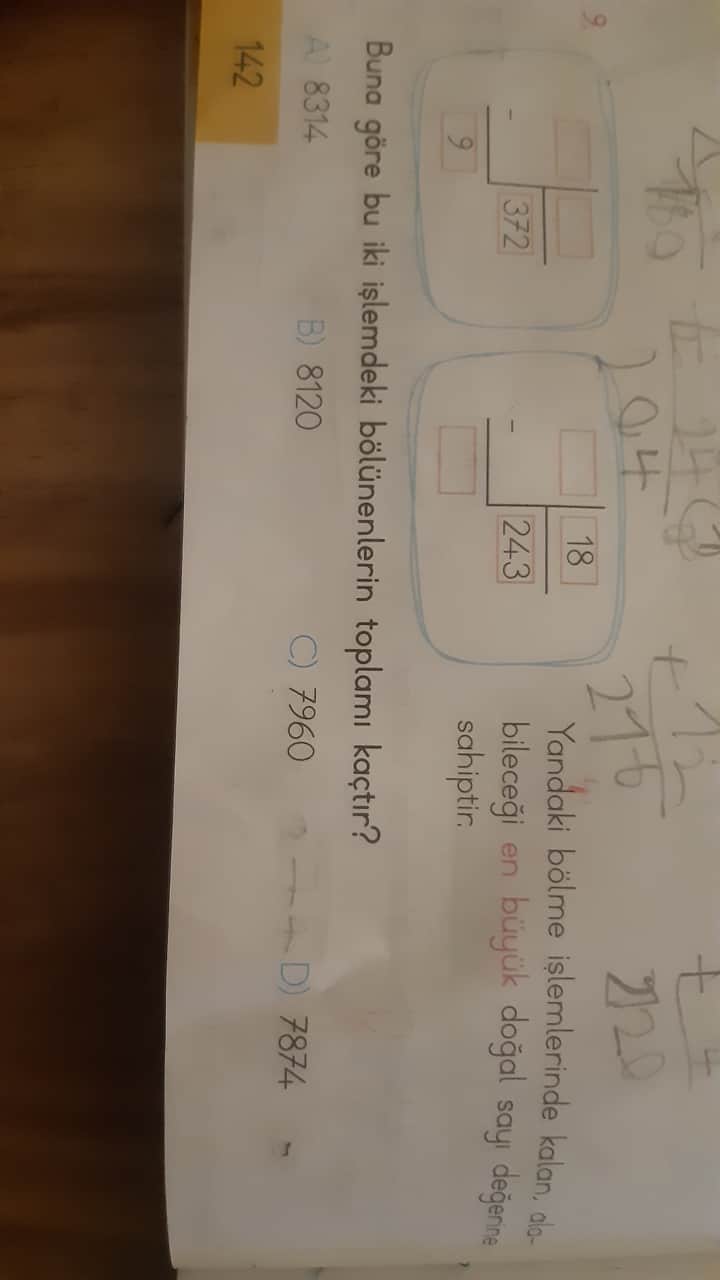 9.
372
9
18
243
Yandaki bölme işlemlerinde kalan, ala-
bileceği en büyük doğal sayı değerine
sahiptir.
Buna göre bu iki işlemdeki bölünenlerin toplamı kaçtır?
A) 8314 B) 8120 C) 7960 D) 7874
142